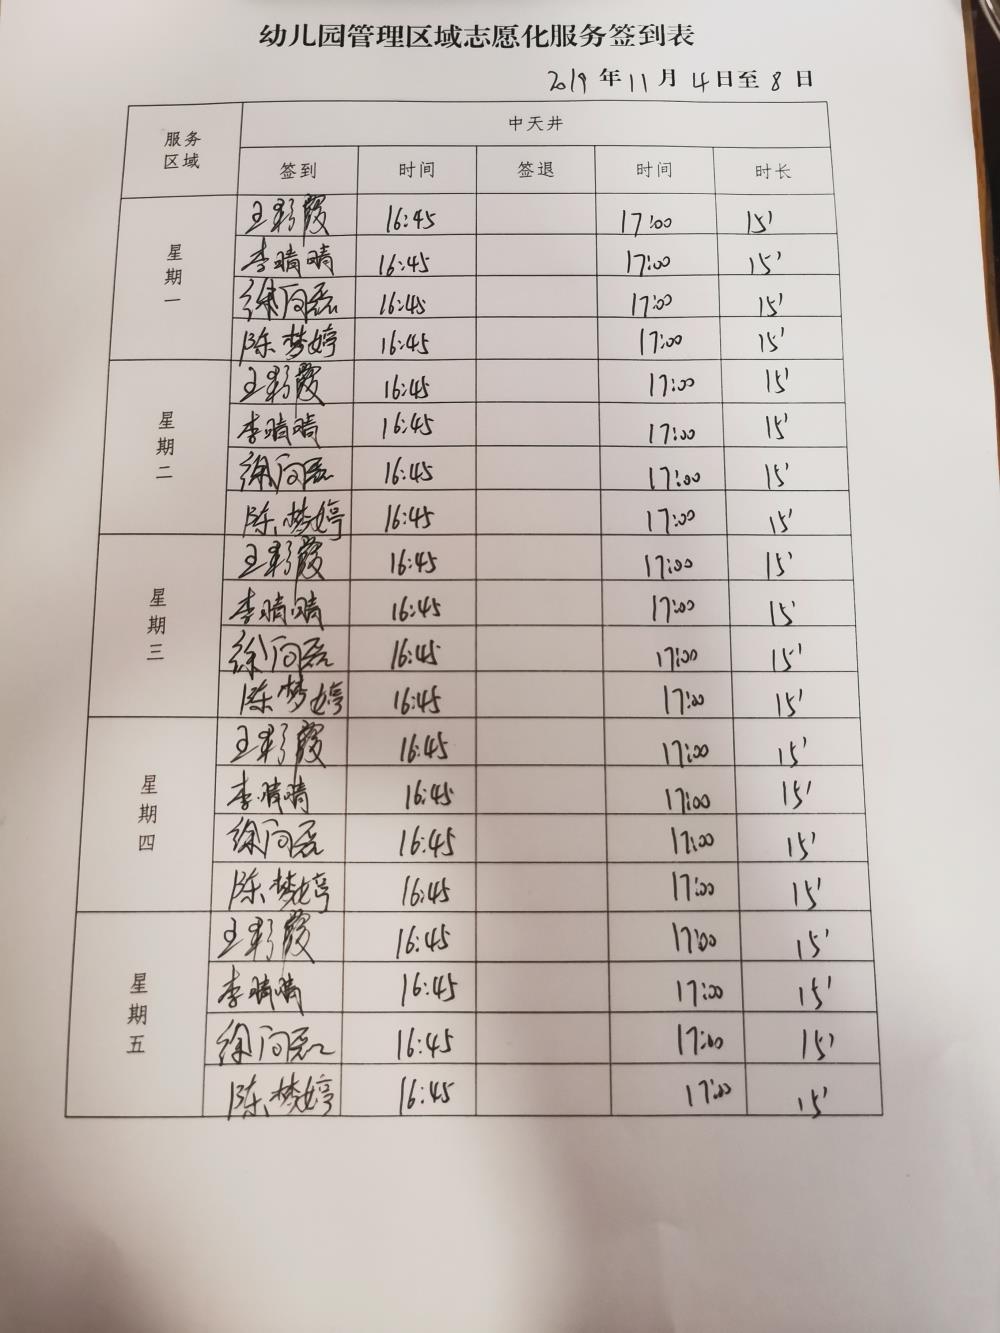 幼儿园管理区域志愿化服务签到表
2019 年 11 月 4 日至 8 日
服务区域 中天井
签到 时间 签退 时间 时长
星期一
王彩霞 16:45 17:00 15'
李晴晴 16:45 17:00 15'
徐向磊 16:45 17:00 15'
陈梦婷 16:45 17:00 15'
星期二
王彩霞 16:45 17:00 15'
李晴晴 16:45 17:00 15'
徐向磊 16:45 17:00 15'
陈梦婷 16:45 17:00 15'
星期三
王彩霞 16:45 17:00 15'
李晴晴 16:45 17:00 15'
徐向磊 16:45 17:00 15'
陈梦婷 16:45 17:00 15'
星期四
王彩霞 16:45 17:00 15'
李晴晴 16:45 17:00 15'
徐向磊 16:45 17:00 15'
陈梦婷 16:45 17:00 15'
星期五
王彩霞 16:45 17:00 15'
李晴晴 16:45 17:00 15'
徐向磊 16:45 17:00 15'
陈梦婷 16:45 17:00 15'